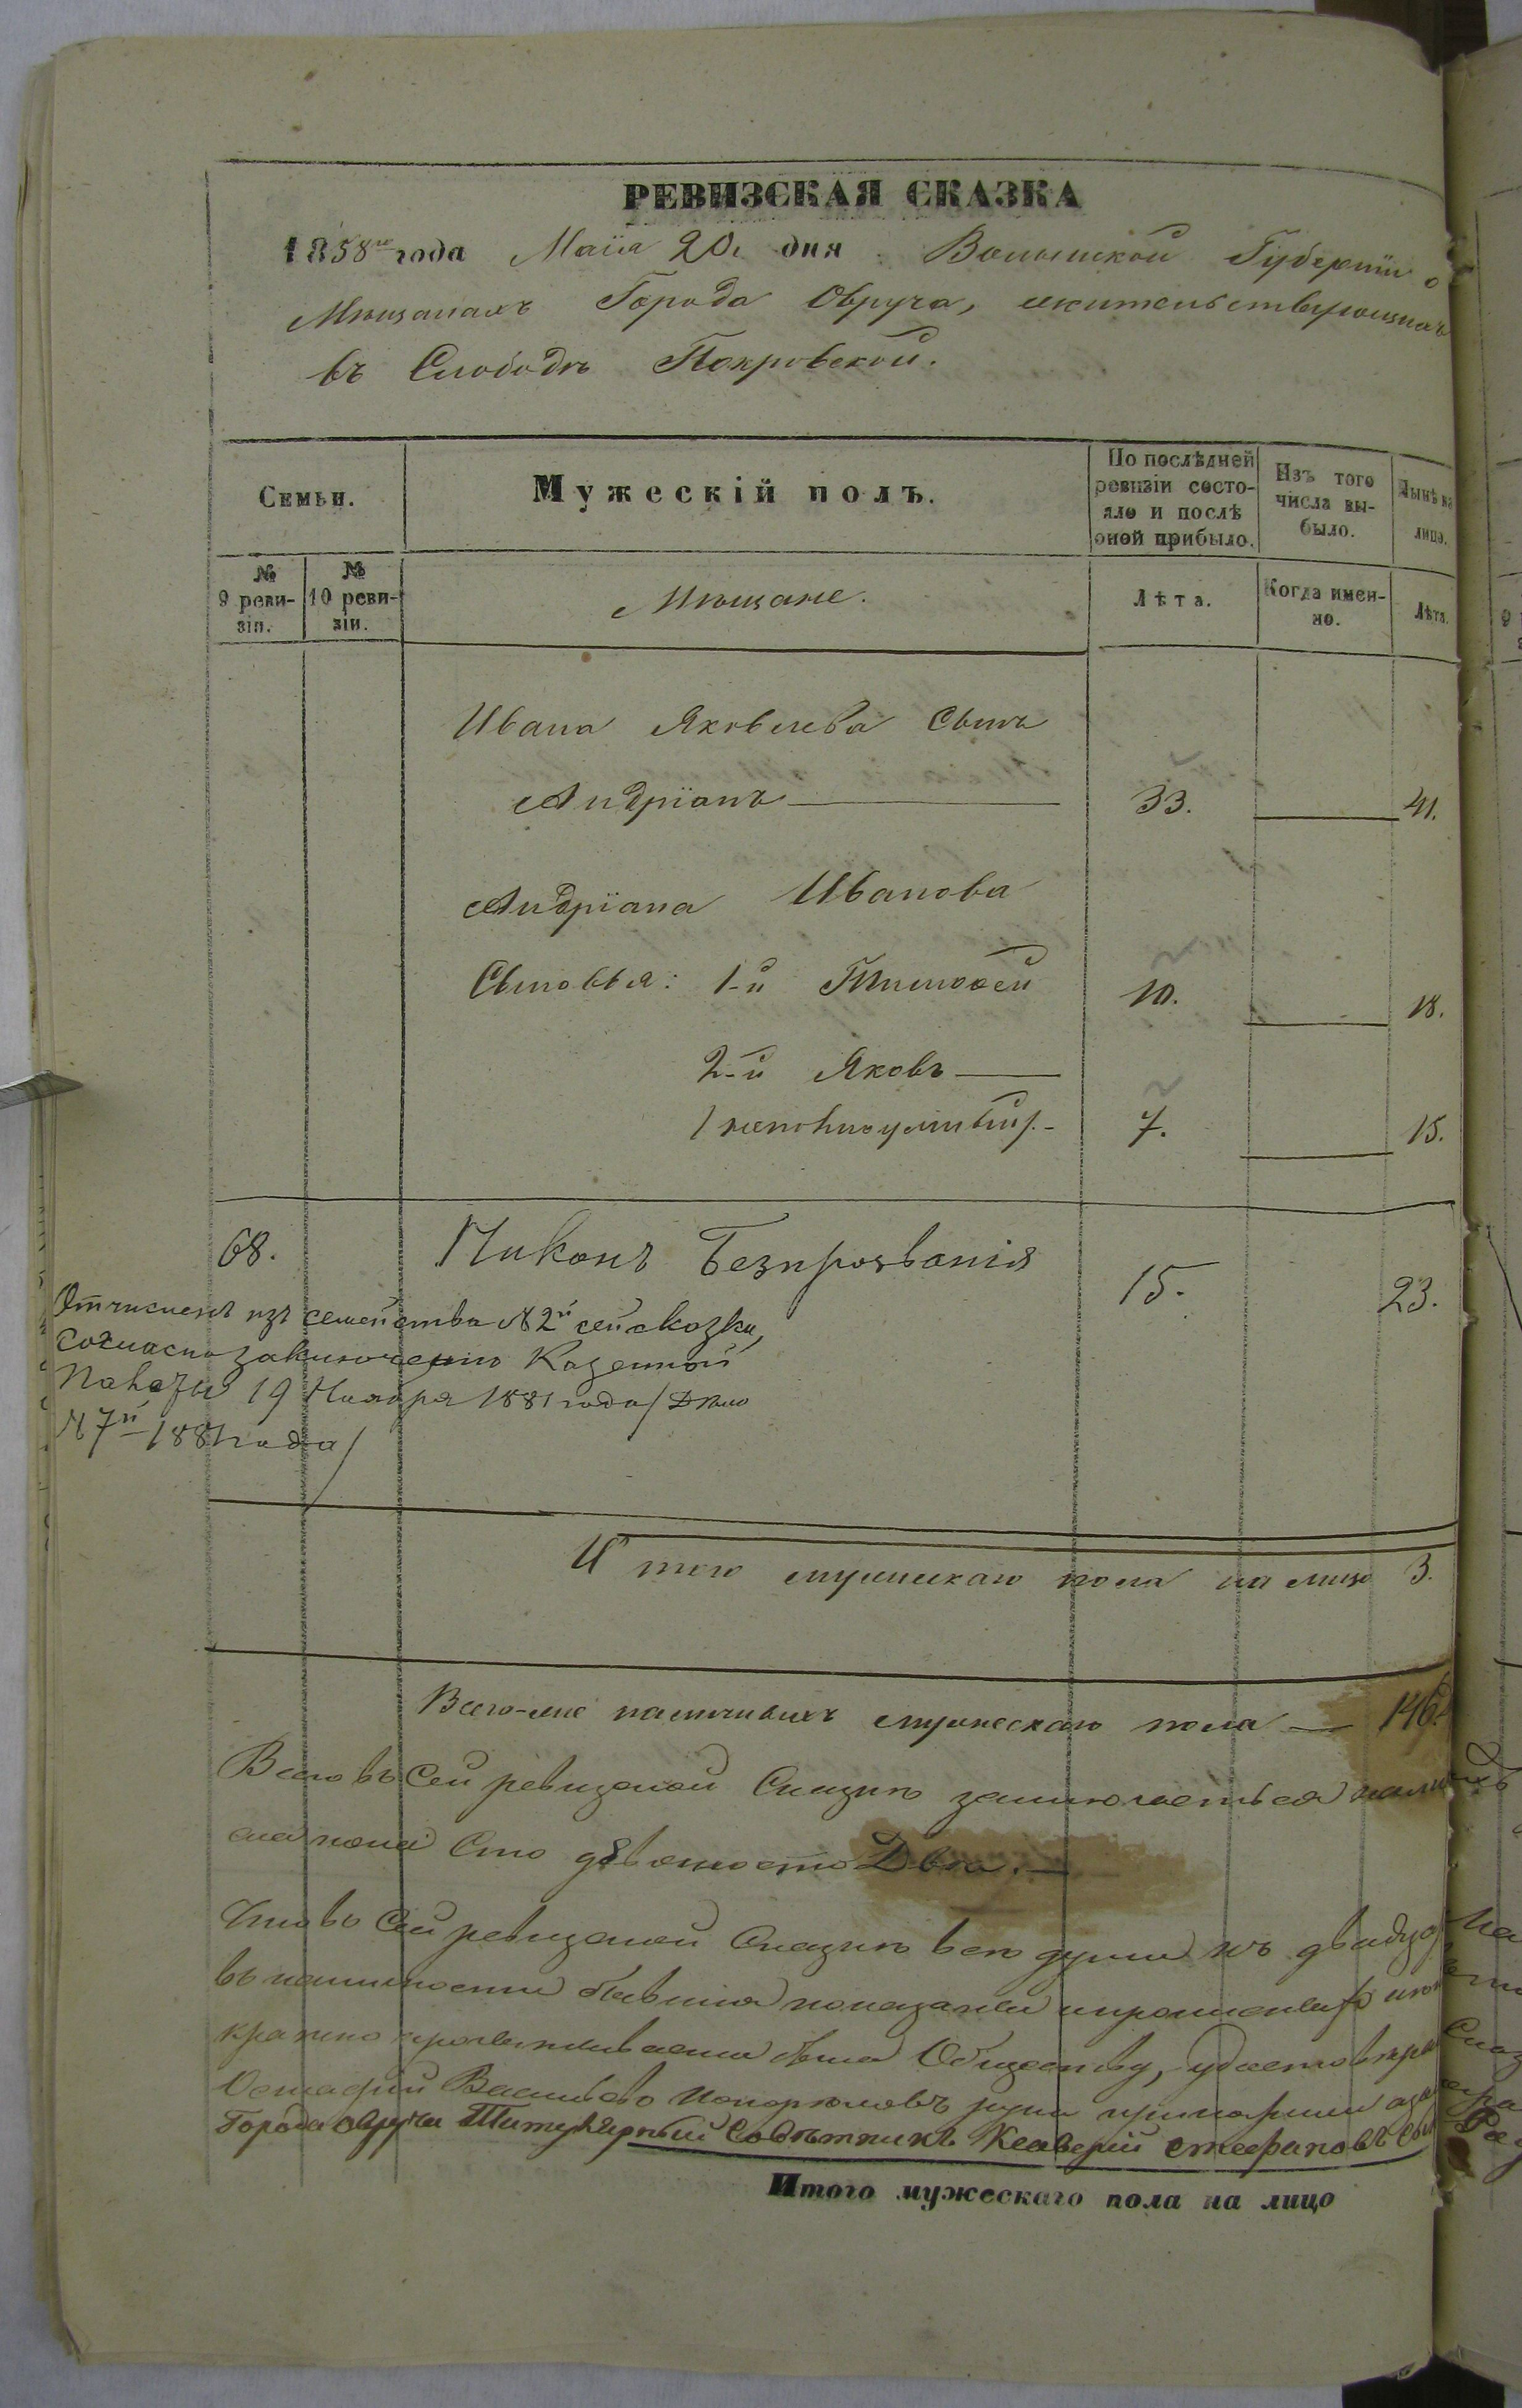 РЕВИЗСКАЯ СКАЗКА
1858го года Маія 20 дня Волынской Губерніи о
Мѣщанахъ Города Овруча, жительствующихъ
въ Слободѣ Покровской.
Семьи.
Мужескій полъ.
По послѣдней ревизіи состояло и послѣ оной прибыло.
Изъ того числа выбыло.
Нынѣ на лицо.
№ 9 ревизіи.
№ 10 ревизіи.
Мѣщане.
Лѣта.
Когда именно.
Лѣта.
Ивана Яковлева Сынъ
Андріанъ 33. 41.
Андріана Иванова
Сыновья: 1-й Тимофей 10. 18.
2-й Яковъ
7. 15.
68. Никонъ Безпрозванія 15. 23.
Отчисленъ изъ семейства № 2й сей сказки,
согласно заключенію Казенной
Палаты 19 Ноября 1881 года / Дѣло
№ 7й 1881 года /
Итого мужескаго пола на лицо 3.
Всего-же наличныхъ мужескаго пола
Всего въ Сей ревизской Сказкѣ заключается
пола Сто девяносто Два.
Что въ Сей ревизской Сказкѣ всѣ души къ
въ наличности бывшія показаны и
была Обществу,
Остафій
Города Овруча Титулярный Совѣтникъ Ксаверій Стефановъ
Итого мужескаго пола на лицо